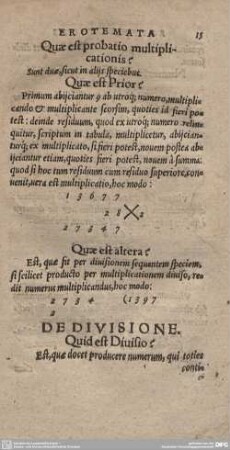 EROTEMATA 15
Quæ est probatio multipli-
cationis?
Sunt duæ, sicut in alijs speciebus.
Quæ est Prior?
Primum abijciantur 9 ab utroq; numero, multipli
cando & multiplicante seorsim, quoties id fieri po
test: demde residuum, quod ex utroq; numero relin
quitur, scriptum in tabula, multiplicetur, abijcian-
turq; ex multiplicato, si fieri potest, nouem postea ab
ijciantur etiam, quoties fieri potest, nouem à summa:
quod si hoc tum residuum cum residuo superiore, con-
uenit, uera est multiplicatio, hoc modo:
1 3 6 7 7
2 2 8 X 2
2 7 3 4 7
Quæ est altera?
Est, quæ fit per diuisionem sequentem speciem,
si scilicet producto per multiplicationem diuiso, re-
dit numerus multiplicandus, hoc modo:
2 7 3 4 (1397
2
DE DIVISIONE.
Quid est Diuisio?
Est, quæ docet producere numerum, qui toties
conti